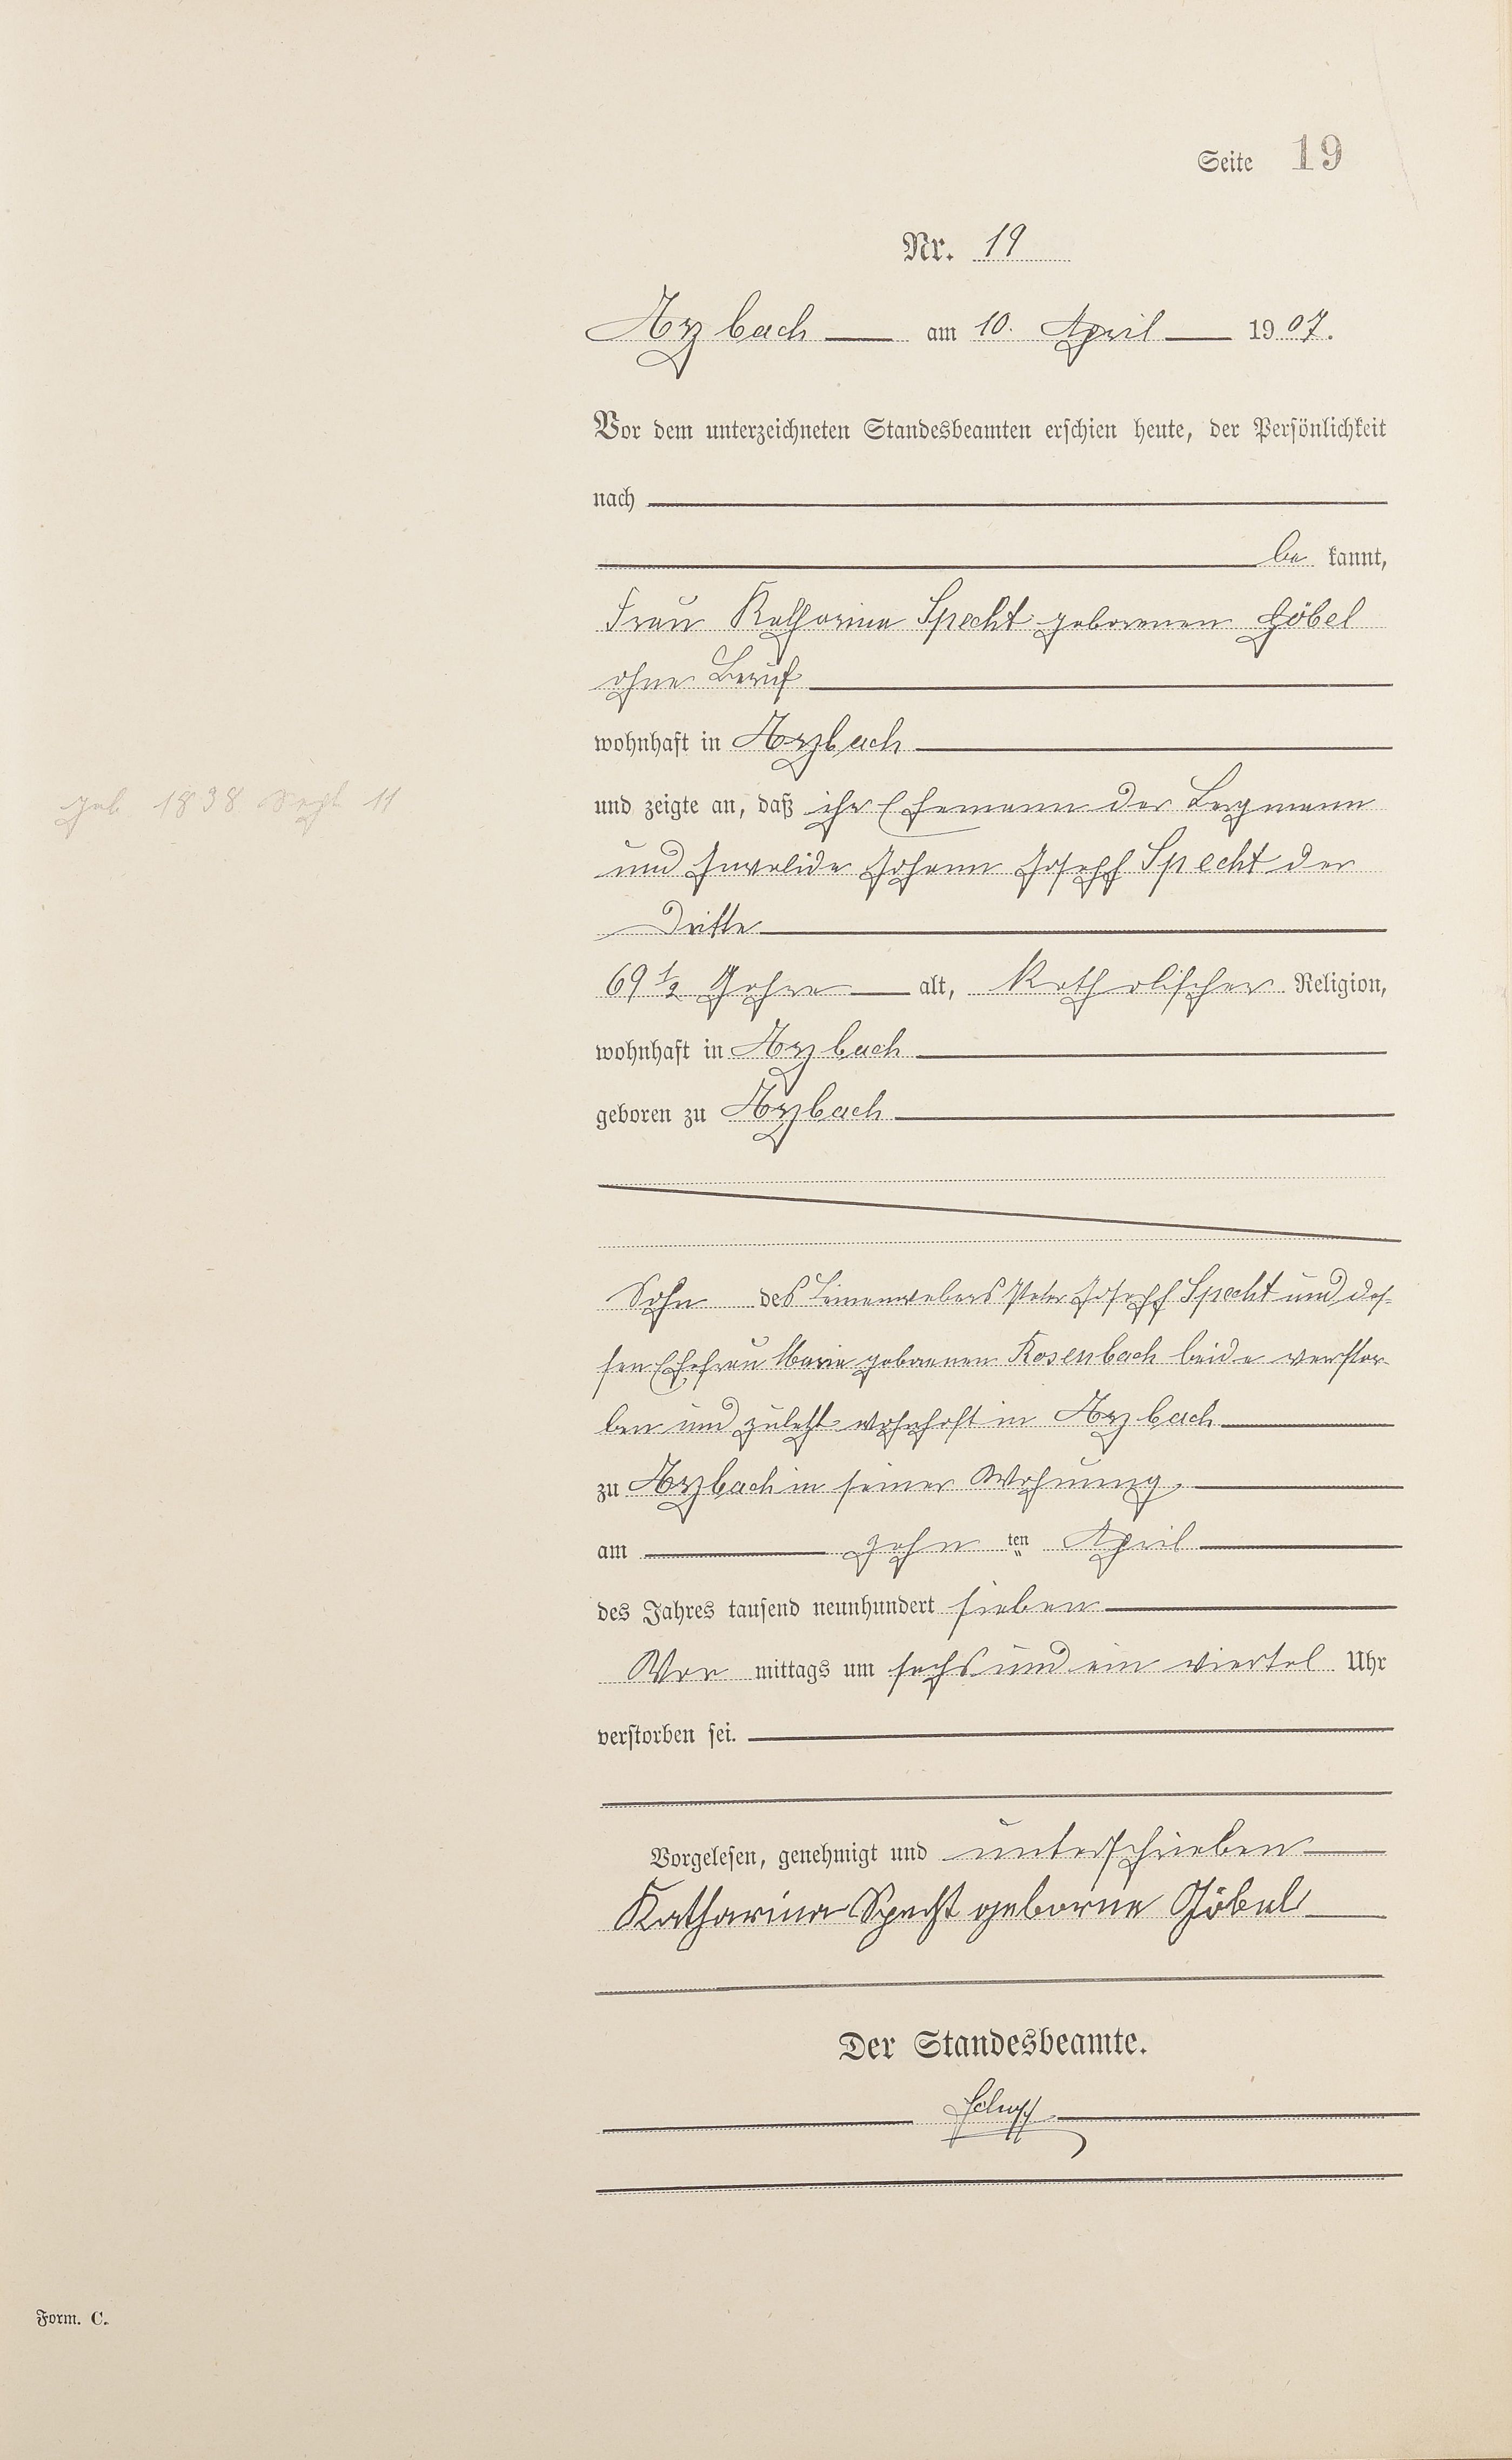 Seite 19
Nr. 19
Arzbach am 10. April 1907.
Vor dem unterzeichneten Standesbeamten erschien heute, der Persönlichkeit
nach
be kannt,
Frau Katharina Specht geborenen Göbel
ohne Beruf
wohnhaft in Arzbach
geb 1838 Sept 11
und zeigte an, daß ihr Ehemann der Bergmann
und Invalide Johann Joseph Specht der
Dritte
69 1/2 Jahre alt, Katholischer Religion,
wohnhaft in Arzbach
geboren zu Arzbach
Sohn des Leinenwebers Peter Joseph Specht und des-
sen Ehefrau Maria geborenen Rosenbach beide verstor-
ben und zuletzt wohnhaft in Arzbach
zu Arzbach in seiner Wohnung
am zehn ten April
des Jahres tausend neunhundert sieben
Vor mittags um sechs und ein viertel Uhr
verstorben sei.
Vorgelesen, genehmigt und unterschrieben
Katharina Specht geborne Göbel
Der Standesbeamte.
Form. C.